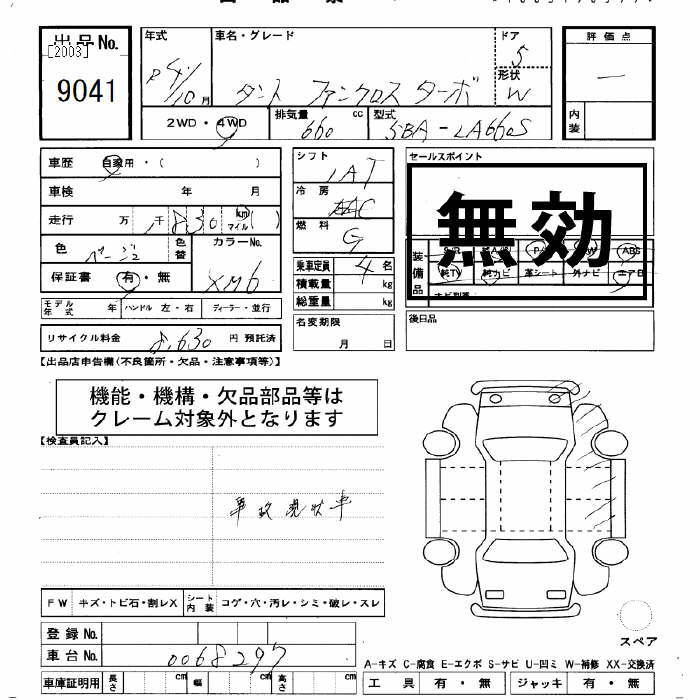 出品No.
[2003]
9041
年式
R4/10月
車名・グレード
タント ファンクロス ターボ
ドア
5
形状
W
2WD・4WD
排気量 660 cc
型式 5BA-LA660S
評価点
一
内装
車歴 自家用・( )
車検 年 月
走行 万 千 830 km マイル ( )
色 ベージュ 色替 カラーNo. XM6
保証書 有・無
モデル年式 年 ハンドル 左・右 ディーラー・並行
リサイクル料金 8,630 円 預託済
シフト
IAT
冷房
AAC
燃料
G
乗車定員 4 名
積載量 kg
総重量 kg
名変期限
月 日
セールスポイント
無効
装備品
SR 純AW PS PW ABS
純TV 純ナビ 革シート 外ナビ エアB
後日品
【出品店申告欄(不良箇所・欠品・注意事項等)】
機能・機構・欠品部品等は
クレーム対象外となります
【検査員記入】
事故現状車
FW キズ・トビ石・割レX シート内装 コゲ・穴・汚レ・シミ・破レ・スレ
登録No.
車台No. 0068297
車庫証明用 長さ cm 幅 cm 高さ cm
スペア
A-キズ C-腐食 E-エクボ S-サビ U-凹ミ W-補修 XX-交換済
工具 有・無 ジャッキ 有・無